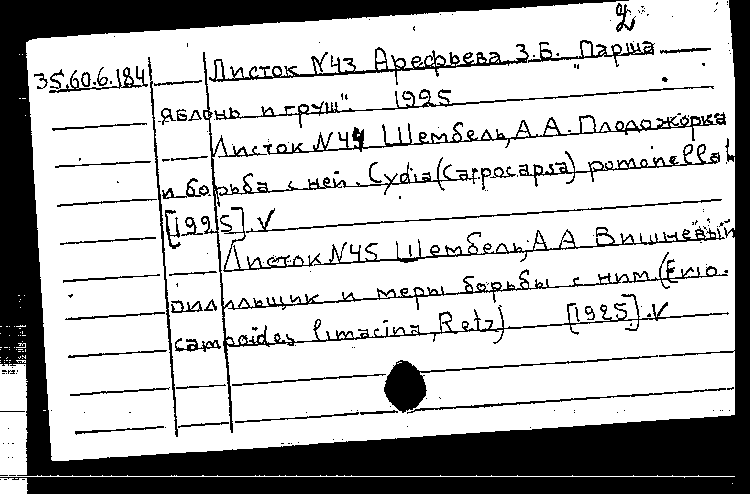 2
35.60.6.184 Листок N43 Арефьева З.Б. "Парша
яблонь и груш". 1925
Листок N44 Шембель, А.А. Плодожорка
и борьба с ней. Cydia (Carpocapsa) pomonella L
[1925].V
Листок N45 Шембель, А А Вишневый
пилильщик и меры борьбы с ним. (Erio.
campoides limacina, Retz) [1925].V